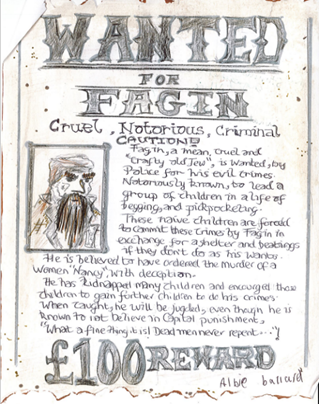 WANTED
FOR
FAGIN
Cruel, Notorious, Criminal
CAUTION!!
Fagin, a mean, cruel and
"crafty old Jew", is wanted, by
Police for his evil crimes.
Notoriously known, to lead a
group of children in a life of
begging, and pickpocketing.
These naive children are forced
to commit these crimes by Fagin in
exchange for a shelter and beatings
if they don't do as his wants.
He is believed to have ordered the murder of a
women "Nancy", with deception.
He has kidnapped many children and encourges these
children to gain forther children to do his crimes.
When caught, he will be judged, even though he is
known to not believe in Capital punishment,
"What a fine thing it is! Dead men never repent..."
£100 REWARD
Albie